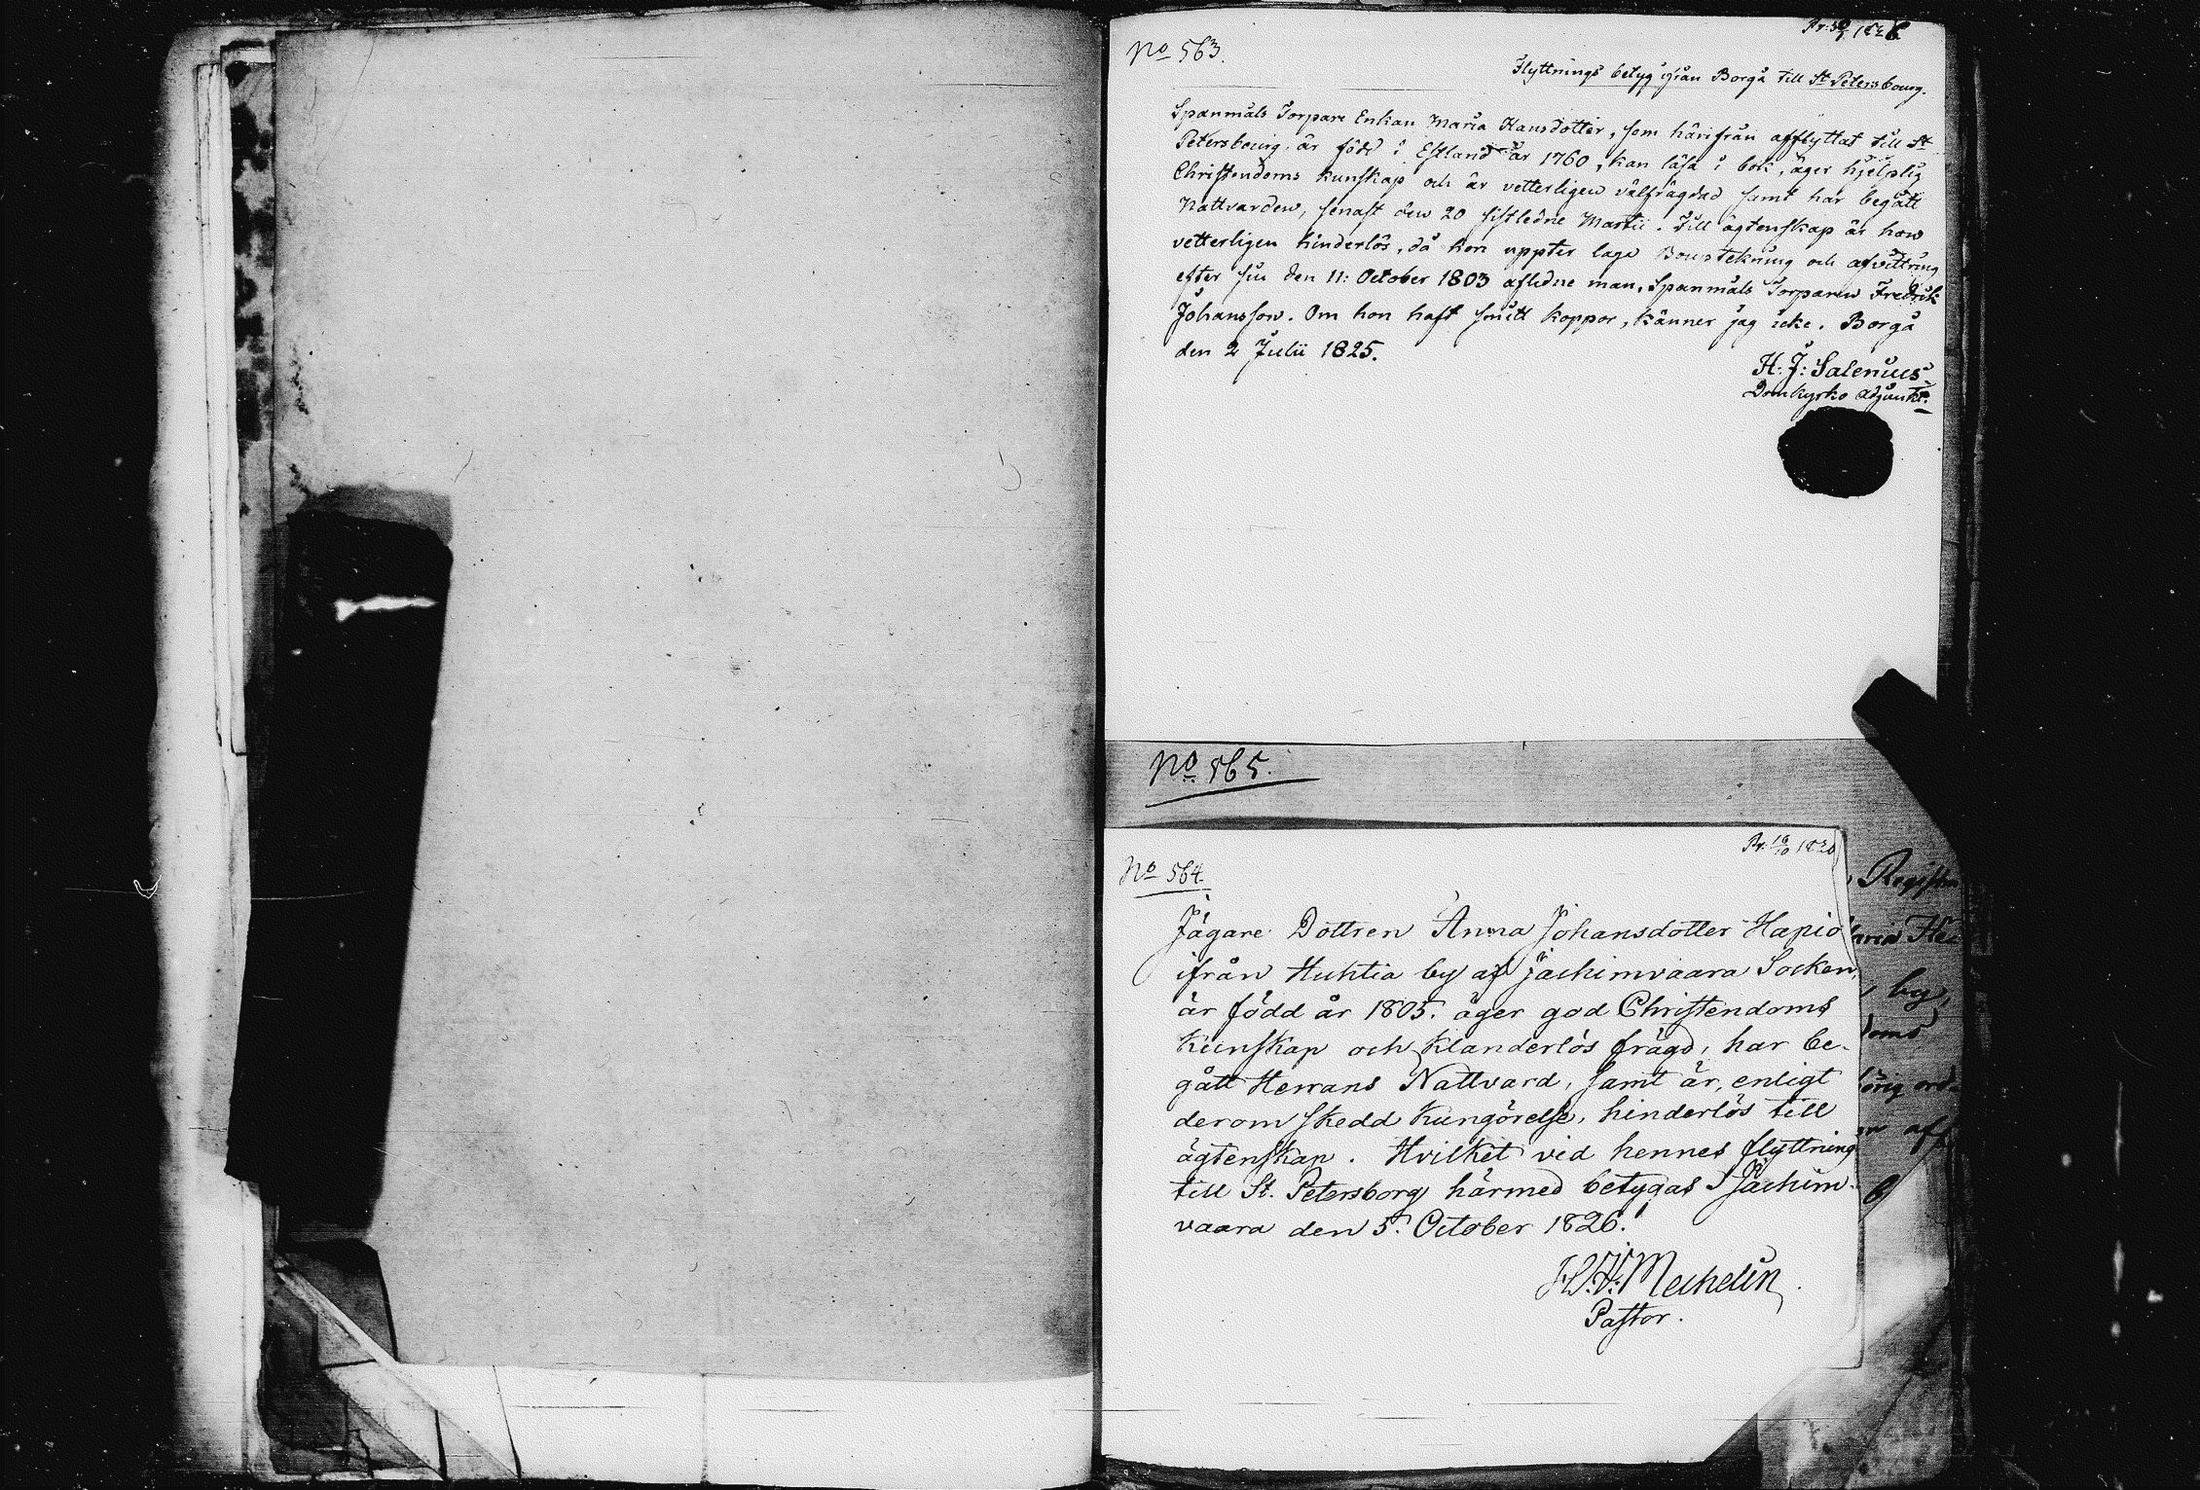 No 563.
Flyttnings betyg ifrån Borgå till St Petersbourg.
Spanmåls Torpare Enkan Maria Hansdotter, som härifrån afflyttat till St
Petersbourg, är född i Estland år 1760, kan läsa i bok, äger hjelplig
Christendoms kunskap och är vetterligen välfrägdad samt har begått
Nattvarden, senast den 20 sistledne Martii. Till ägtenskap är hon
vetterligen hinderlös, då hon uppter laga Bouptekning och afvittring
efter sin den 11: October 1803 aflidne man, Spanmåls Torparen Fredrik
Johansson. Om hon haft koppor, känner jag icke. Borgå
den 2 Julii 1825.
H: J: Salenius
Domkyrko Adjunkt.
No 565.
No 564.
Jägare Dottren Anna Johansdotter Hapio
ifrån Huhtia by af Jaakimvaara Socken,
är född år 1805. äger god Christendoms
kunskap och klanderlös frägd, har be-
gått Herrans Nattvard, samt är, enligt
derom skedd kungörelse, hinderlös till
ägtenskap. Hvilket vid hennes flyttning
till St. Petersborg härmed betygas Jächim-
vaara den 5. October 1826.
Mechelin
Pastor.
by,